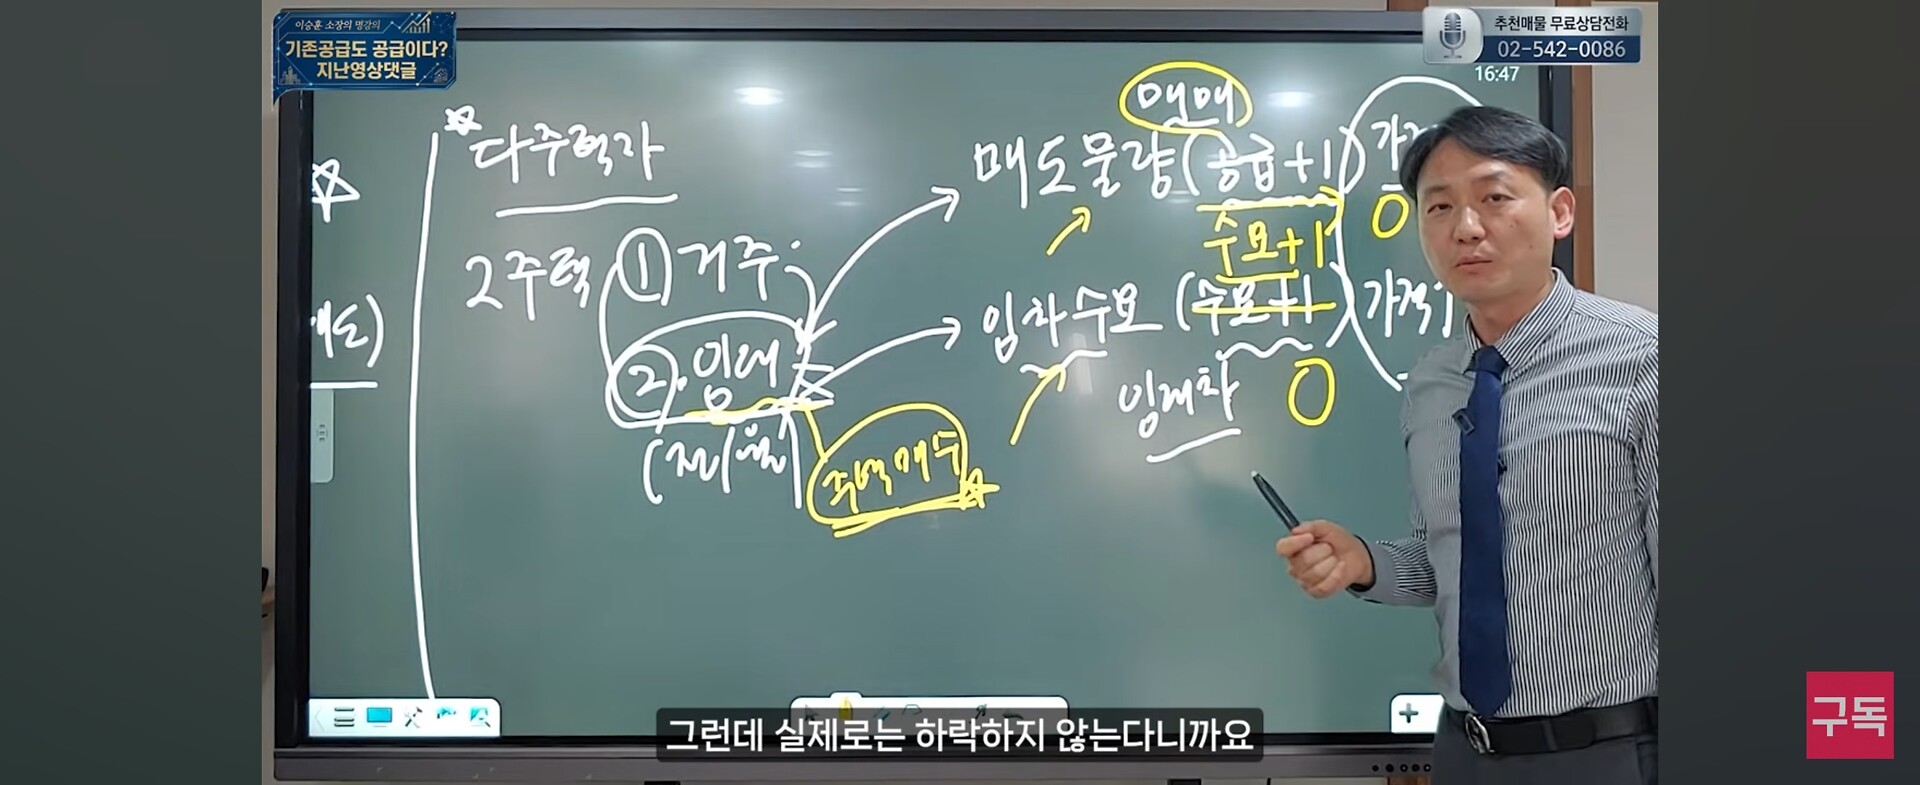 이승훈 소장의 명강의
기존공급도 공급이다?
지난영상댓글
추천매물 무료상담전화
02-542-0086
16:47
다주택자
2주택 ① 거주
② 임대
(전/월)
주택매수
매매
매도물량(공급+1) 가
수요+1
0
임차수요(수요+1) 가격
임대차 0
도)
그런데 실제로는 하락하지 않는다니까요
구독